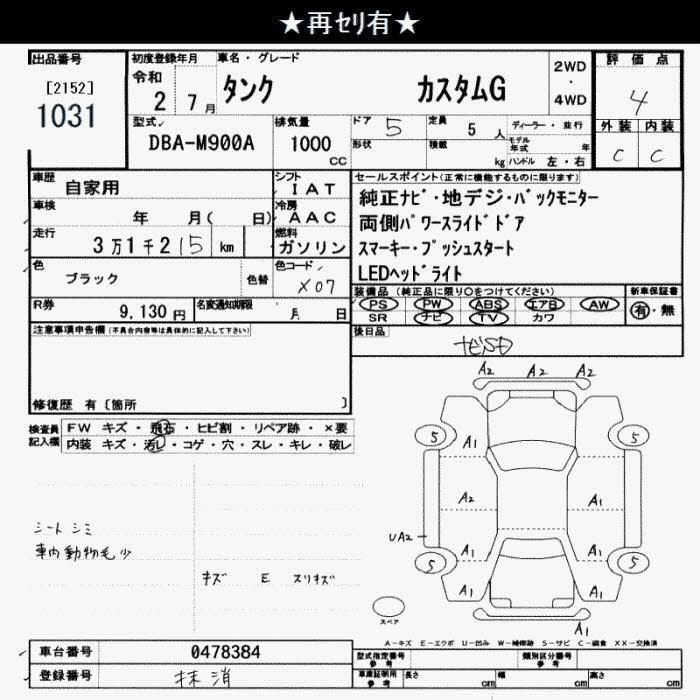 ★再ｾﾘ有★
出品番号
[2152]
1031
初度登録年月
令和
2 7月
車名・グレード
タンク カスタムG
2WD
・
4WD
評価点
4
外装 内装
C C
型式
DBA-M900A
排気量
1000
cc
ドア 5
定員 5 人
ディーラー・並行
形状
積載 kg
モデル年式 年
ハンドル 左・右
車歴 自家用
シフト IAT
車検 年 月( 日)
冷房 AAC
走行 3万1千215 km
燃料 ガソリン
色 ブラック 色替
色コード X07
R券 9,130円
名変通知期限 月 日
セールスポイント(正常に機能するものに限ります)
純正ナビ・地デジ・バックモニター
両側パワースライドドア
スマーキー・プッシュスタート
LEDヘッドライト
装備品(純正品に限り○をつけてください)
新車保証書
PS PW ABS エアB AW
有・無
SR ナビ TV カワ
後日品
ナビSD
注意事項申告欄(不具合内容等は具体的に記入して下さい)
修復歴 有〔箇所 〕
検査員記入欄
FW キズ・飛石・ヒビ割・リペア跡・×要
内装 キズ・汚レ・コゲ・穴・スレ・キレ・破レ
シート シミ
車内動物毛少
キズ E スリキズ
A2 A2 A2
5 5
A1
A2 A1
UA2
A1 A1
5 5
A1 A1
A1
スペア
A-キズ E-エクボ U-凹み W-補修跡 S-サビ C-腐食 XX-交換済
車台番号 0478384
登録番号 抹消
型式指定番号 参考
類別区分番号 参考
車庫証明用 参考
長さ cm 幅 cm 高さ cm